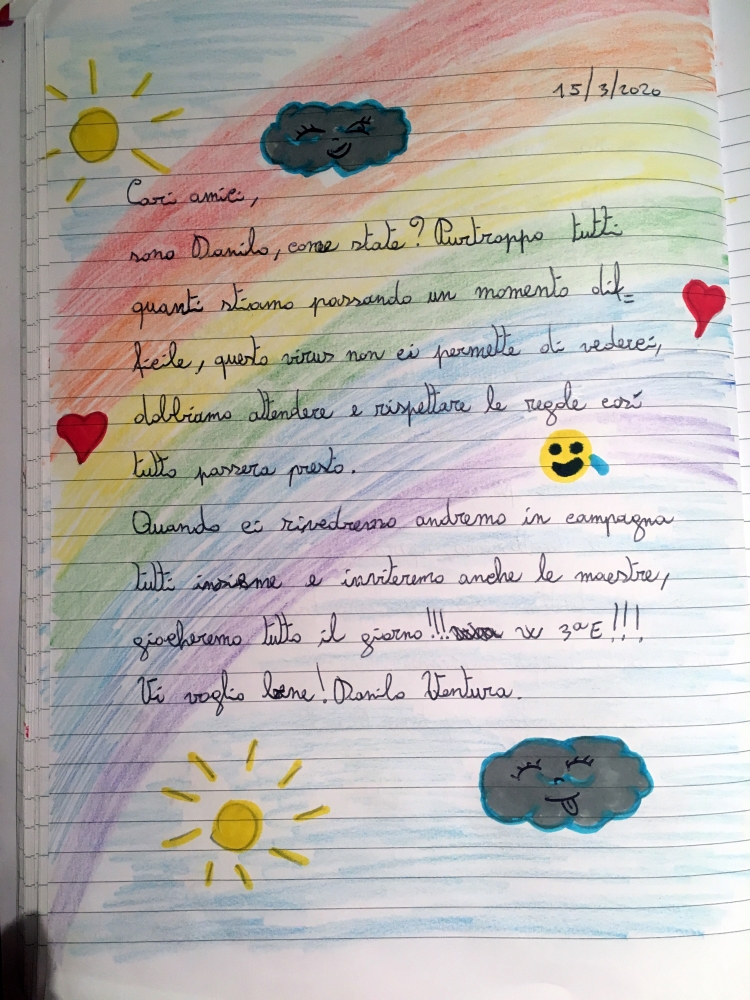 15/3/2020
Cari amici,
sono Danilo, come state? Purtroppo tutti
quanti stiamo passando un momento dif=
ficile, questo virus non ci permette di vederci,
dobbiamo attendere e rispettare le regole così
tutto passera presto.
Quando ci rivedremo andremo in campagna
tutti insieme e inviteremo anche le maestre,
giocheremo tutto il giorno!!! W 3ªE!!!
Vi voglio bene! Danilo Ventura.